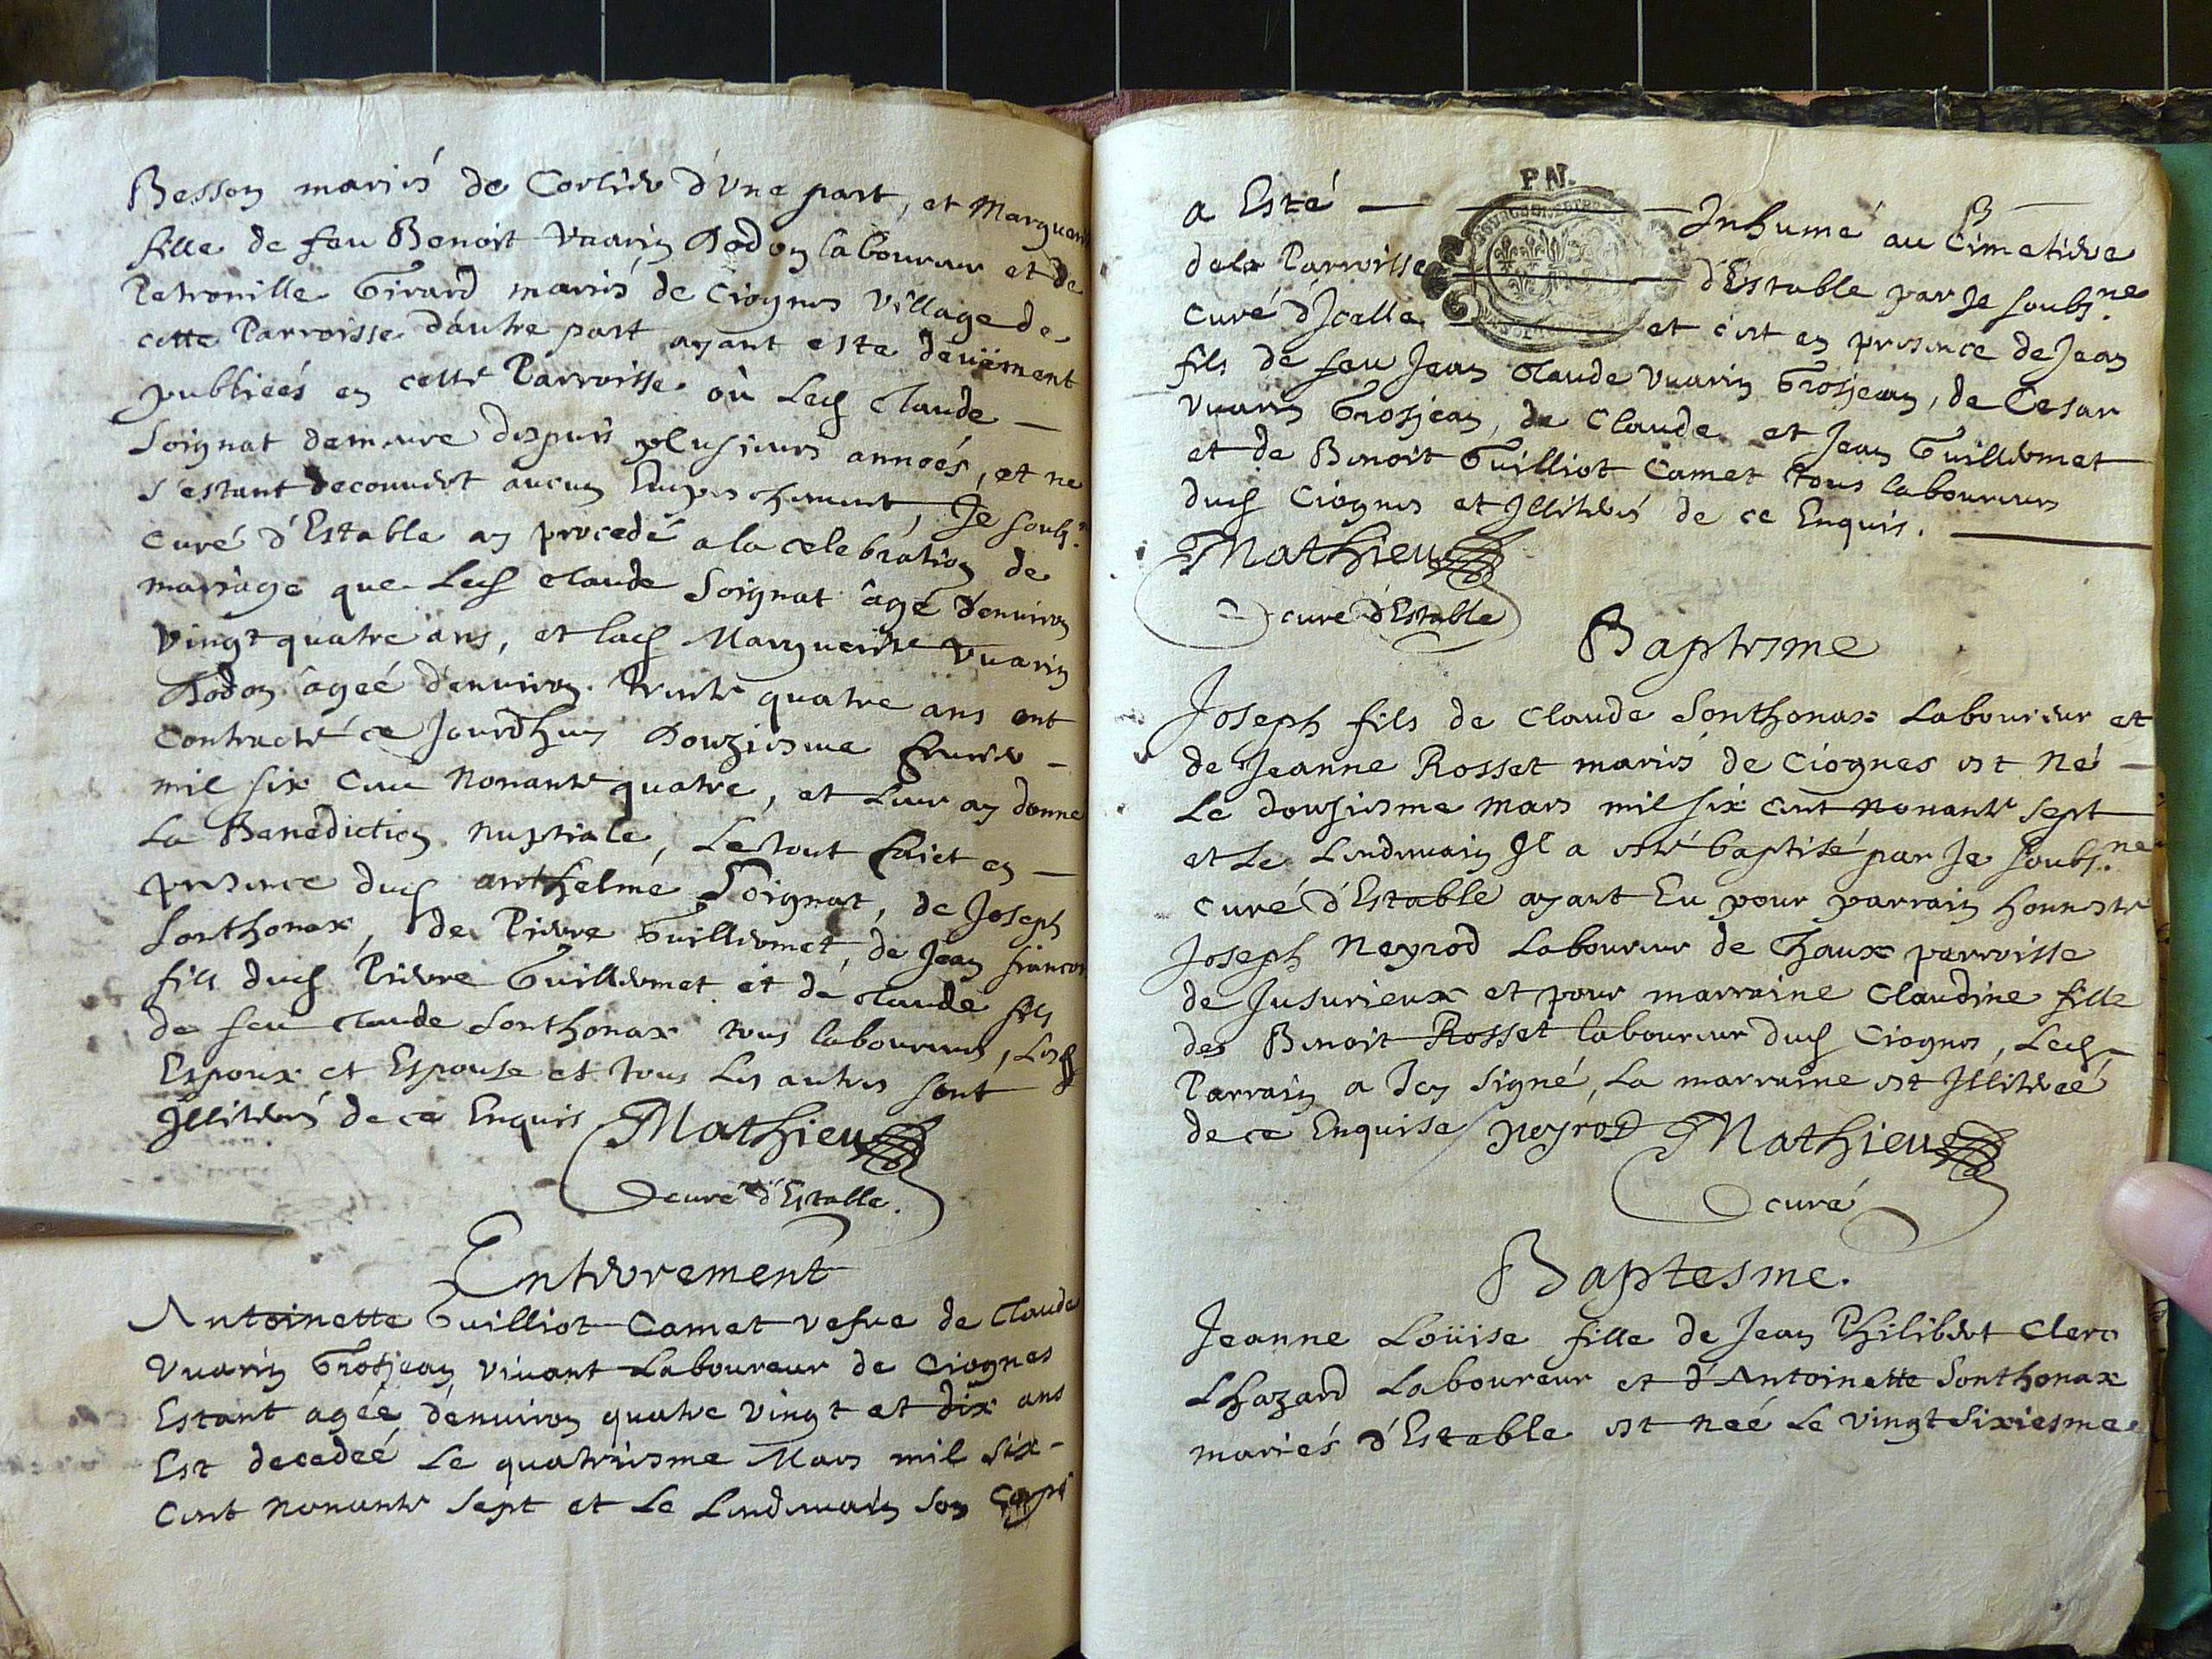 Besson mariés de Corlier d'vne part, et Marguerit
fille de feu Benoit Vuarin Dodon laboureur et de
Petronille Girard mariés de Ciognes village de
cette Parroisse d'autre part ayant esté deüement
publieés en cette Parroisse où Led Claude
Soignat demeure depuis plusieurs anneés, et ne
s'estant decouuert aucun Empeschement, Je soubs.né
Curé d'Estable ay procedé a la celebration de
mariage que Led Claude Soignat âgé d'enuiron
vingt quatre ans, et lad Marguerite Vuarin
Dodon âgeé d'enuiron trente quatre ans ont
Contracté ce Jourdhuy Douziesme feurier
mil six cent Nonante quatre, et Leur ay donné
La Benediction Nuptiale, Le tout faict en
presence dud anthelme Soignat, de Joseph
Sonthonax, de Pierre Guillermet, de Jean francois
fils dud Pierre Guillermet et de Claude fils
de feu Claude Sonthonax tous laboureurs, Lesd
Espoux et Espouse et tous Les autres sont
Illiterés de ce Enquis Mathieu
curé d'Estable.
Enterrement
Antoinette Guilliot Camet vefue de Claude
Vuarin Grosjean viuant Laboureur de Ciognes
Estant ageé d'enuiron quatre vingt et dix ans
Est decedeé Le quatriesme Mars mil six
cent nonante sept et Le Lendemain son Corps
P.N.
a Esté Inhumé au Cimetiere
dela Parroisse d'Estable par Je soubs.né
curé d'Icelle et c'est en presence de Jean
fils de feu Jean Claude Vuarin Grosjean, de Cesar
Vuarin Grosjean, de Claude et Jean Guillermet
et de Benoit Guilliot Camet tous laboureurs
dud Ciognes et Illiterés de ce Enquis.
Mathieu
curé d'Estable
Baptesme
Joseph fils de Claude Sonthonax Laboureur et
de Jeanne Rosset mariés de Ciognes est né
Le douziesme Mars mil six cent nonante sept
et Le Lendemain Il a esté baptisé par Je soubs.né
curé d'Estable ayant Eu pour parrain honneste
Joseph Neyrod Laboureur de Chaux parroisse
de Jusurieux et pour marraine Claudine fille
de Benoit Rosset laboureur dud Ciognes, Led
Parrain a Icy signé, La marraine est Illitereé
de ce Enquise neyrod Mathieu
curé
Baptesme.
Jeanne Loüise fille de Jean Philibert Clerc
Lhazard Laboureur et d'Antoinette Sonthonax
mariés d'Estable est neé Le vingt sixiesme